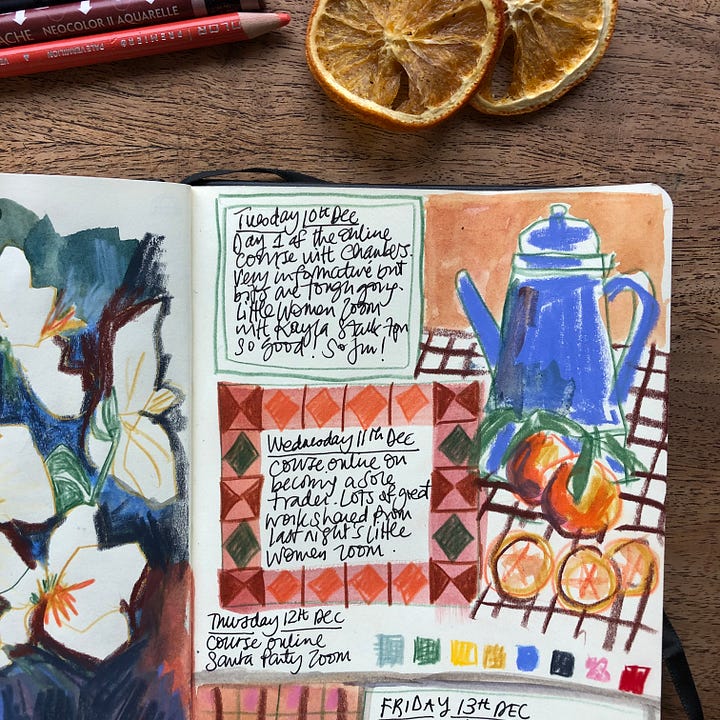 ACHE NEOCOLOR II AQUARELLE
COLOR PREMIER
PALE VERMILION
Tuesday 10th Dec
Day 1 of the online
course with Chambers.
Very informative but
bits are tough going.
Little Women Zoom
with Kayla Stark 7pm
So good! So fun!
Wednesday 11th Dec
Course online on
becoming a sole
trader. Lots of great
work shared from
last night's Little
Women Zoom.
Thursday 12th Dec
Course online
Santa Party Zoom
FRIDAY 13TH DEC